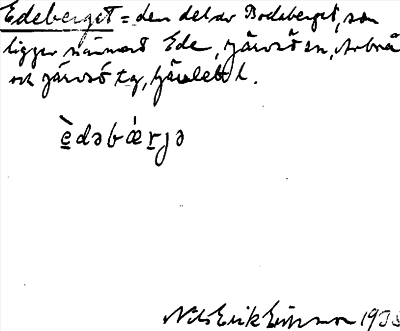 Edeberget = den del av Bodaberget, som
ligger närmast Ede, Järvsö sn, Arbrå
och Järvsö tg, Gävleb l.
è̱dəbǽṟjə
Nils Erik 1938